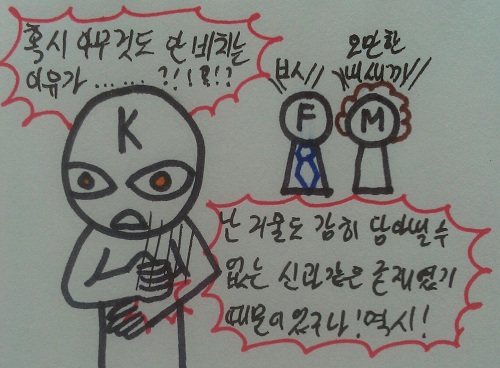 혹시 아무것도 안 비치는
이유가 ...... ?!!?!?
오만한
병시//
깨새끼//
K
F
M
난 거울도 감히 담아낼 수
없는 신과같은 존재였기
때문이었구나! 역시!